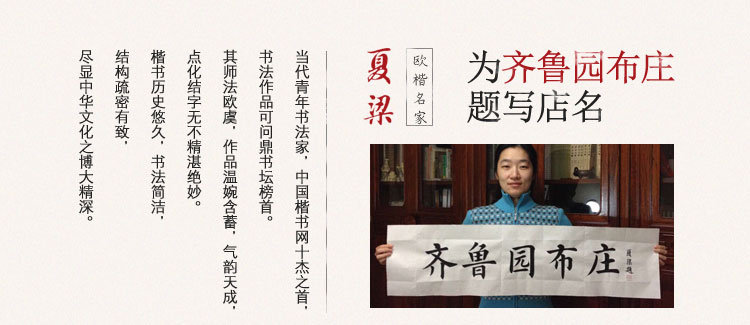 为齐鲁园布庄
题写店名
夏梁
欧楷名家
当代青年书法家，中国楷书网十杰之首，
书法作品可问鼎书坛榜首。
其师法欧虞，作品温婉含蓄，气韵天成，
点化结字无不精湛绝妙。
楷书历史悠久，书法简洁，
结构疏密有致，
尽显中华文化之博大精深。
齐鲁园布庄
夏梁题